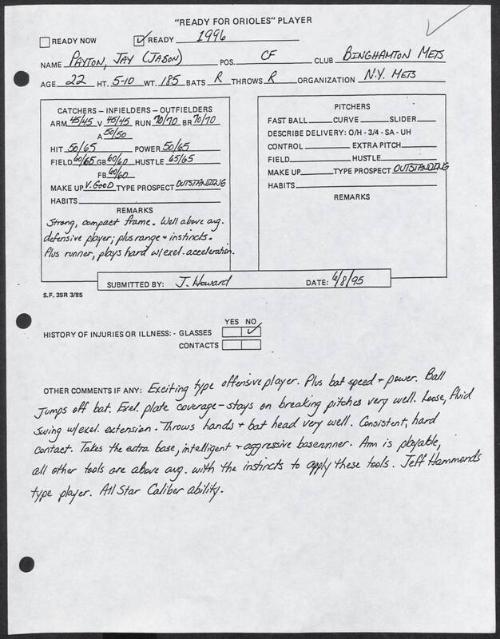 "READY FOR ORIOLES" PLAYER
READY NOW READY 1996
NAME PAYTON, JAY (JASON) POS. CF CLUB BINGHAMTON METS
AGE 22 HT. 5-10 WT. 185 BATS R THROWS R ORGANIZATION N.Y. METS
CATCHERS – INFIELDERS – OUTFIELDERS
ARM 45/45 V 45/45 RUN 70/70 BR 70/70
A 50/50
HIT 50/65 POWER 50/65
FIELD 60/65 GB 60/60 HUSTLE 65/65
FB 60/60
MAKE UP V. GOOD TYPE PROSPECT OUTSTANDING
HABITS
REMARKS
Strong, compact frame. Well above avg.
defensive player; plus range + instincts.
Plus runner, plays hard w/exel. acceleration.
PITCHERS
FAST BALL CURVE SLIDER
DESCRIBE DELIVERY: O/H - 3/4 - SA - UH
CONTROL EXTRA PITCH
FIELD HUSTLE
MAKE UP TYPE PROSPECT OUTSTANDING
HABITS
REMARKS
SUBMITTED BY: J. Howard DATE: 6/8/95
S.F. 35R 3/85
YES NO
HISTORY OF INJURIES OR ILLNESS: - GLASSES
CONTACTS
OTHER COMMENTS IF ANY: Exciting type offensive player. Plus bat speed + power. Ball
jumps off bat. Exel. plate coverage - stays on breaking pitches very well. Loose, fluid
swing w/exel. extension. Throws hands + bat head very well. Consistent, hard
contact. Takes the extra base, intelligent + aggressive baserunner. Arm is playable,
all other tools are above avg. with the instincts to apply these tools. Jeff Hammonds
type player. All Star Caliber ability.